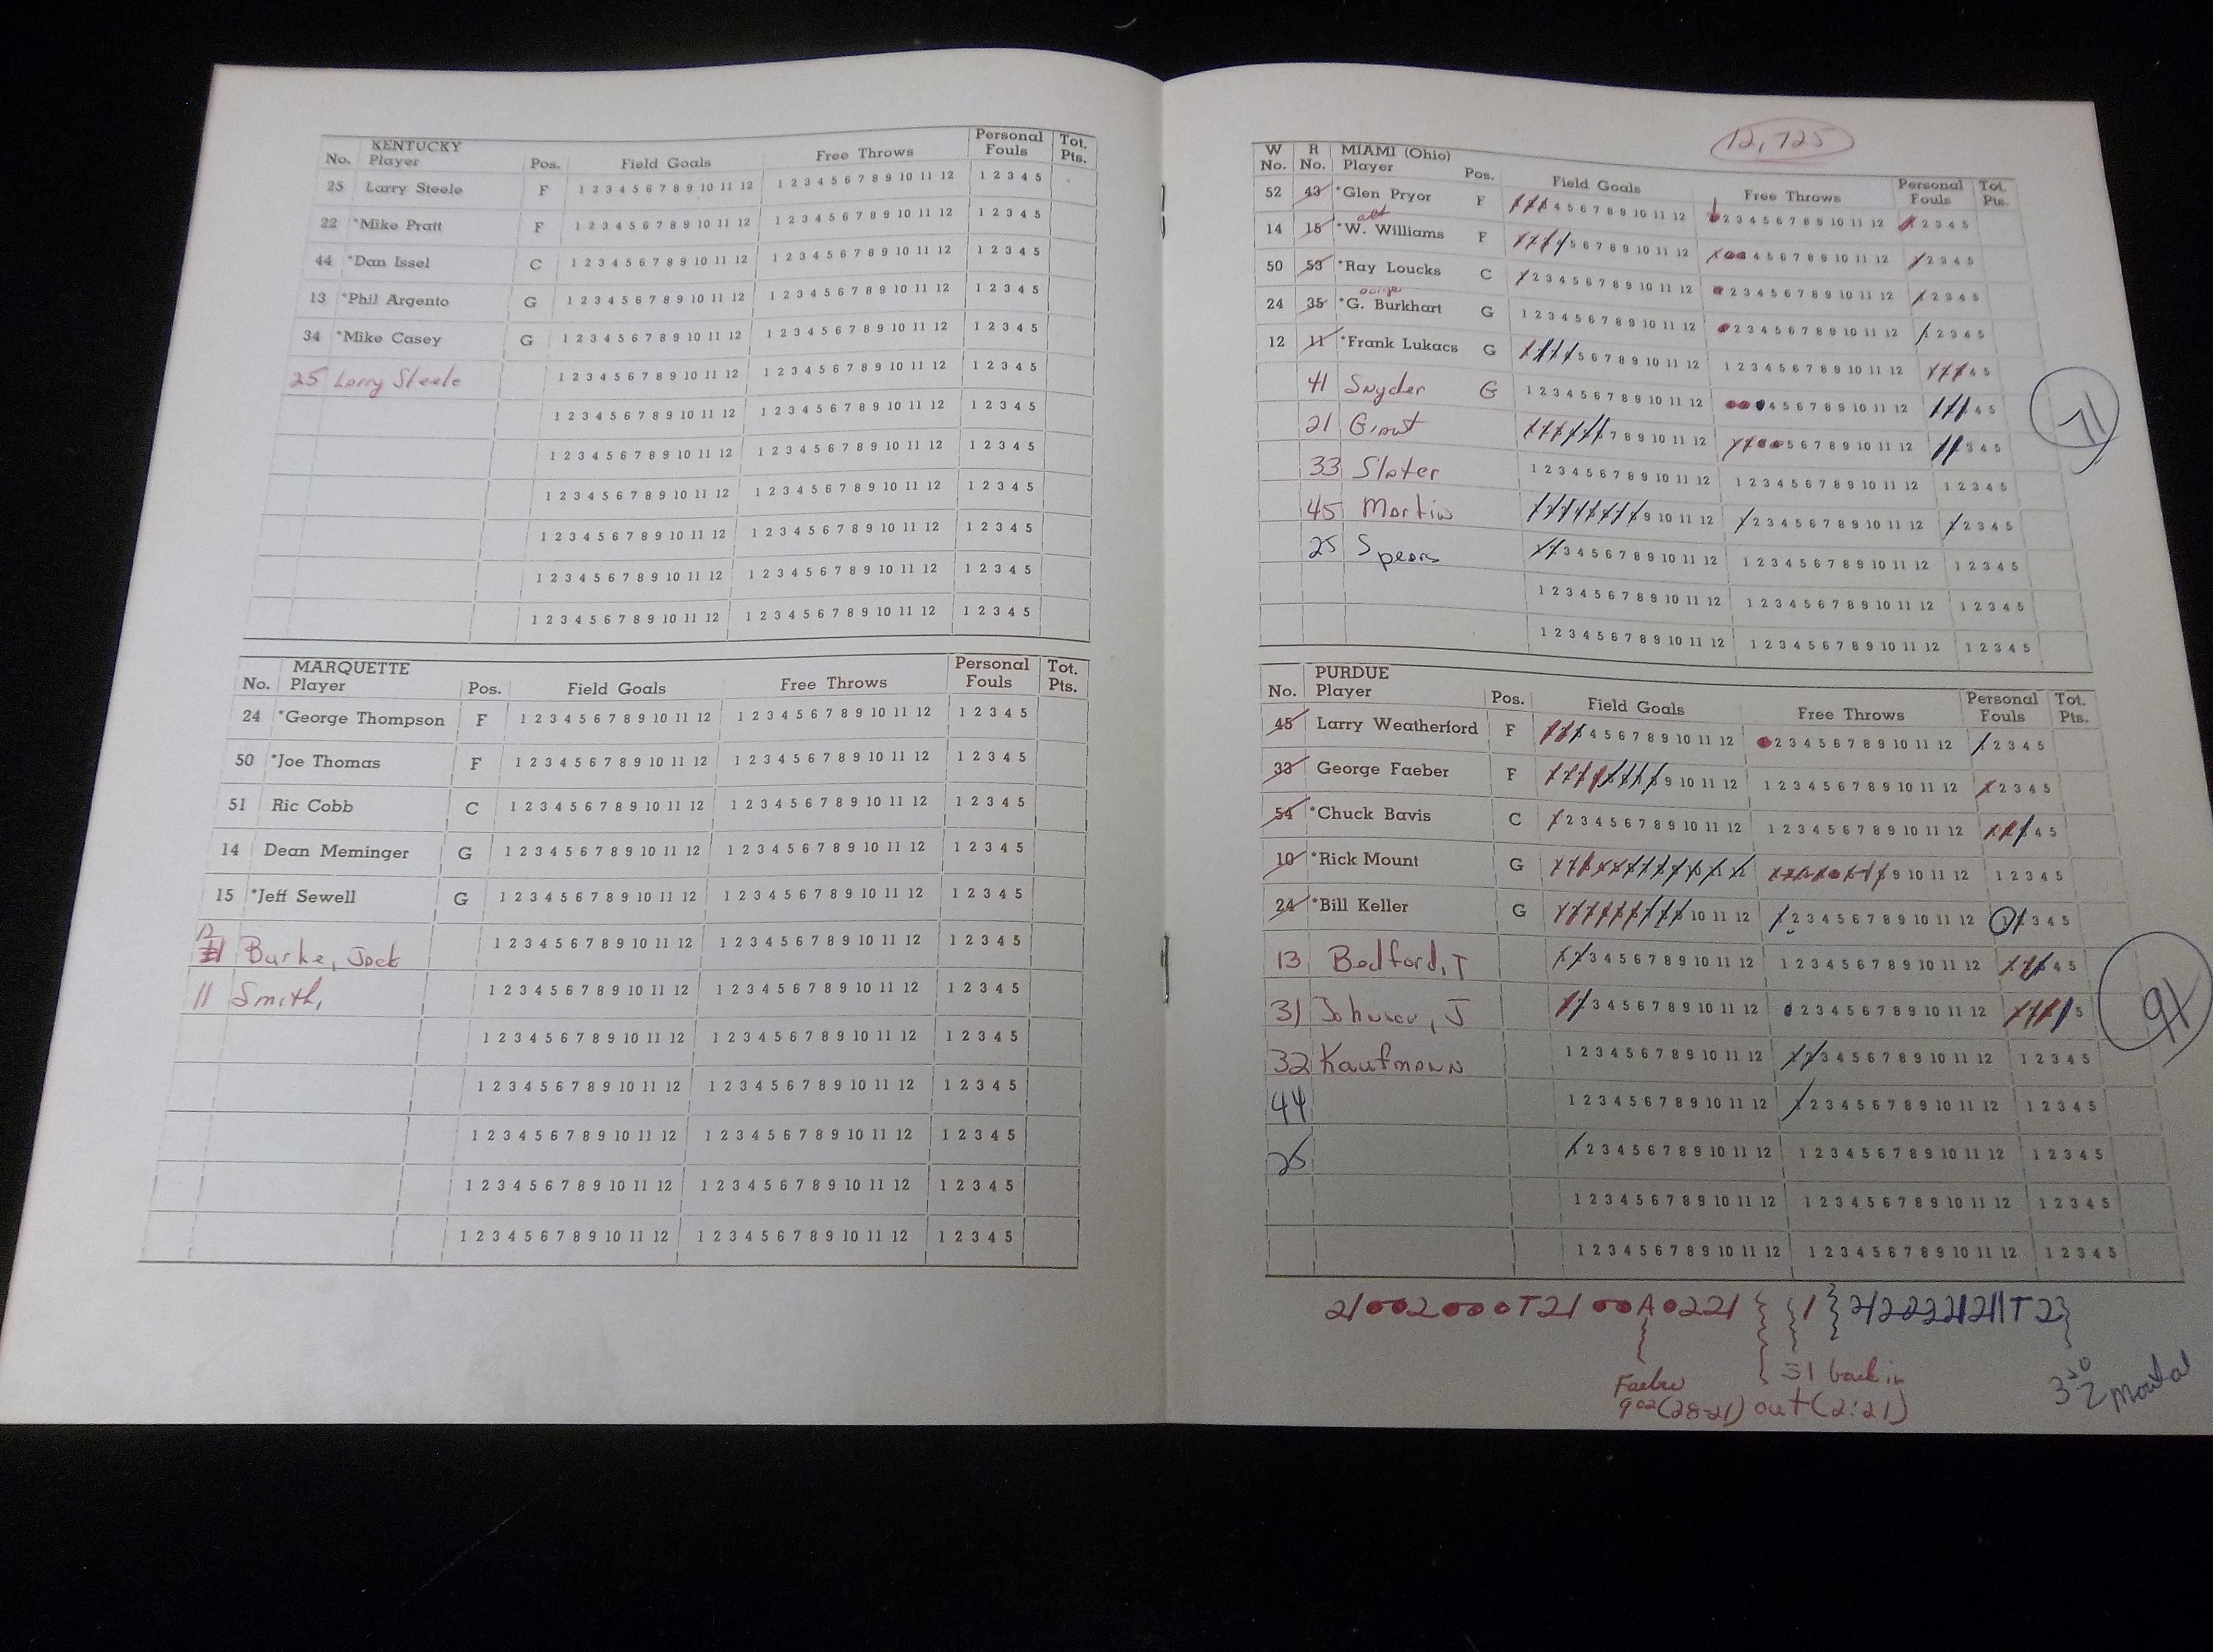 KENTUCKY
No. Player Pos. Field Goals Free Throws Personal Fouls Tot. Pts.
25 Larry Steele F 1 2 3 4 5 6 7 8 9 10 11 12 1 2 3 4 5 6 7 8 9 10 11 12 1 2 3 4 5
22 *Mike Pratt F 1 2 3 4 5 6 7 8 9 10 11 12 1 2 3 4 5 6 7 8 9 10 11 12 1 2 3 4 5
44 *Dan Issel C 1 2 3 4 5 6 7 8 9 10 11 12 1 2 3 4 5 6 7 8 9 10 11 12 1 2 3 4 5
13 *Phil Argento G 1 2 3 4 5 6 7 8 9 10 11 12 1 2 3 4 5 6 7 8 9 10 11 12 1 2 3 4 5
34 *Mike Casey G 1 2 3 4 5 6 7 8 9 10 11 12 1 2 3 4 5 6 7 8 9 10 11 12 1 2 3 4 5
25 Larry Steele 1 2 3 4 5 6 7 8 9 10 11 12 1 2 3 4 5 6 7 8 9 10 11 12 1 2 3 4 5
1 2 3 4 5 6 7 8 9 10 11 12 1 2 3 4 5 6 7 8 9 10 11 12 1 2 3 4 5
1 2 3 4 5 6 7 8 9 10 11 12 1 2 3 4 5 6 7 8 9 10 11 12 1 2 3 4 5
1 2 3 4 5 6 7 8 9 10 11 12 1 2 3 4 5 6 7 8 9 10 11 12 1 2 3 4 5
1 2 3 4 5 6 7 8 9 10 11 12 1 2 3 4 5 6 7 8 9 10 11 12 1 2 3 4 5
1 2 3 4 5 6 7 8 9 10 11 12 1 2 3 4 5 6 7 8 9 10 11 12 1 2 3 4 5
1 2 3 4 5 6 7 8 9 10 11 12 1 2 3 4 5 6 7 8 9 10 11 12 1 2 3 4 5
MARQUETTE
No. Player Pos. Field Goals Free Throws Personal Fouls Tot. Pts.
24 *George Thompson F 1 2 3 4 5 6 7 8 9 10 11 12 1 2 3 4 5 6 7 8 9 10 11 12 1 2 3 4 5
50 *Joe Thomas F 1 2 3 4 5 6 7 8 9 10 11 12 1 2 3 4 5 6 7 8 9 10 11 12 1 2 3 4 5
51 Ric Cobb C 1 2 3 4 5 6 7 8 9 10 11 12 1 2 3 4 5 6 7 8 9 10 11 12 1 2 3 4 5
14 Dean Meminger G 1 2 3 4 5 6 7 8 9 10 11 12 1 2 3 4 5 6 7 8 9 10 11 12 1 2 3 4 5
15 *Jeff Sewell G 1 2 3 4 5 6 7 8 9 10 11 12 1 2 3 4 5 6 7 8 9 10 11 12 1 2 3 4 5
Burke, Jack 1 2 3 4 5 6 7 8 9 10 11 12 1 2 3 4 5 6 7 8 9 10 11 12 1 2 3 4 5
11 Smith, 1 2 3 4 5 6 7 8 9 10 11 12 1 2 3 4 5 6 7 8 9 10 11 12 1 2 3 4 5
1 2 3 4 5 6 7 8 9 10 11 12 1 2 3 4 5 6 7 8 9 10 11 12 1 2 3 4 5
1 2 3 4 5 6 7 8 9 10 11 12 1 2 3 4 5 6 7 8 9 10 11 12 1 2 3 4 5
1 2 3 4 5 6 7 8 9 10 11 12 1 2 3 4 5 6 7 8 9 10 11 12 1 2 3 4 5
1 2 3 4 5 6 7 8 9 10 11 12 1 2 3 4 5 6 7 8 9 10 11 12 1 2 3 4 5
1 2 3 4 5 6 7 8 9 10 11 12 1 2 3 4 5 6 7 8 9 10 11 12 1 2 3 4 5
12,725
W No. R No. MIAMI (Ohio) Player Pos. Field Goals Free Throws Personal Fouls Tot. Pts.
52 43 *Glen Pryor F 1 2 3 4 5 6 7 8 9 10 11 12 1 2 3 4 5 6 7 8 9 10 11 12 1 2 3 4 5
14 15 *W. Williams F 1 2 3 4 5 6 7 8 9 10 11 12 1 2 3 4 5 6 7 8 9 10 11 12 1 2 3 4 5
50 53 *Ray Loucks C 1 2 3 4 5 6 7 8 9 10 11 12 1 2 3 4 5 6 7 8 9 10 11 12 1 2 3 4 5
24 35 *G. Burkhart G 1 2 3 4 5 6 7 8 9 10 11 12 1 2 3 4 5 6 7 8 9 10 11 12 1 2 3 4 5
12 11 *Frank Lukacs G 1 2 3 4 5 6 7 8 9 10 11 12 1 2 3 4 5 6 7 8 9 10 11 12 1 2 3 4 5
41 Snyder G 1 2 3 4 5 6 7 8 9 10 11 12 1 2 3 4 5 6 7 8 9 10 11 12 1 2 3 4 5 71
21 1 2 3 4 5 6 7 8 9 10 11 12 1 2 3 4 5 6 7 8 9 10 11 12 1 2 3 4 5
33 Slater 1 2 3 4 5 6 7 8 9 10 11 12 1 2 3 4 5 6 7 8 9 10 11 12 1 2 3 4 5
45 Martin 1 2 3 4 5 6 7 8 9 10 11 12 1 2 3 4 5 6 7 8 9 10 11 12 1 2 3 4 5
25 Spears 1 2 3 4 5 6 7 8 9 10 11 12 1 2 3 4 5 6 7 8 9 10 11 12 1 2 3 4 5
1 2 3 4 5 6 7 8 9 10 11 12 1 2 3 4 5 6 7 8 9 10 11 12 1 2 3 4 5
1 2 3 4 5 6 7 8 9 10 11 12 1 2 3 4 5 6 7 8 9 10 11 12 1 2 3 4 5
PURDUE
No. Player Pos. Field Goals Free Throws Personal Fouls Tot. Pts.
45 Larry Weatherford F 1 2 3 4 5 6 7 8 9 10 11 12 1 2 3 4 5 6 7 8 9 10 11 12 1 2 3 4 5
33 George Faeber F 1 2 3 4 5 6 7 8 9 10 11 12 1 2 3 4 5 6 7 8 9 10 11 12 1 2 3 4 5
54 *Chuck Bavis C 1 2 3 4 5 6 7 8 9 10 11 12 1 2 3 4 5 6 7 8 9 10 11 12 1 2 3 4 5
10 *Rick Mount G 1 2 3 4 5 6 7 8 9 10 11 12 1 2 3 4 5 6 7 8 9 10 11 12 1 2 3 4 5
24 *Bill Keller G 1 2 3 4 5 6 7 8 9 10 11 12 1 2 3 4 5 6 7 8 9 10 11 12 1 2 3 4 5
13 Bedford, T 1 2 3 4 5 6 7 8 9 10 11 12 1 2 3 4 5 6 7 8 9 10 11 12 1 2 3 4 5
31 Johnson, J 1 2 3 4 5 6 7 8 9 10 11 12 1 2 3 4 5 6 7 8 9 10 11 12 1 2 3 4 5 91
32 Kaufmann 1 2 3 4 5 6 7 8 9 10 11 12 1 2 3 4 5 6 7 8 9 10 11 12 1 2 3 4 5
44 1 2 3 4 5 6 7 8 9 10 11 12 1 2 3 4 5 6 7 8 9 10 11 12 1 2 3 4 5
25 1 2 3 4 5 6 7 8 9 10 11 12 1 2 3 4 5 6 7 8 9 10 11 12 1 2 3 4 5
1 2 3 4 5 6 7 8 9 10 11 12 1 2 3 4 5 6 7 8 9 10 11 12 1 2 3 4 5
1 2 3 4 5 6 7 8 9 10 11 12 1 2 3 4 5 6 7 8 9 10 11 12 1 2 3 4 5
21002000T2100A0221
31 back in
Faeber
902 (28-21) out (2:21)